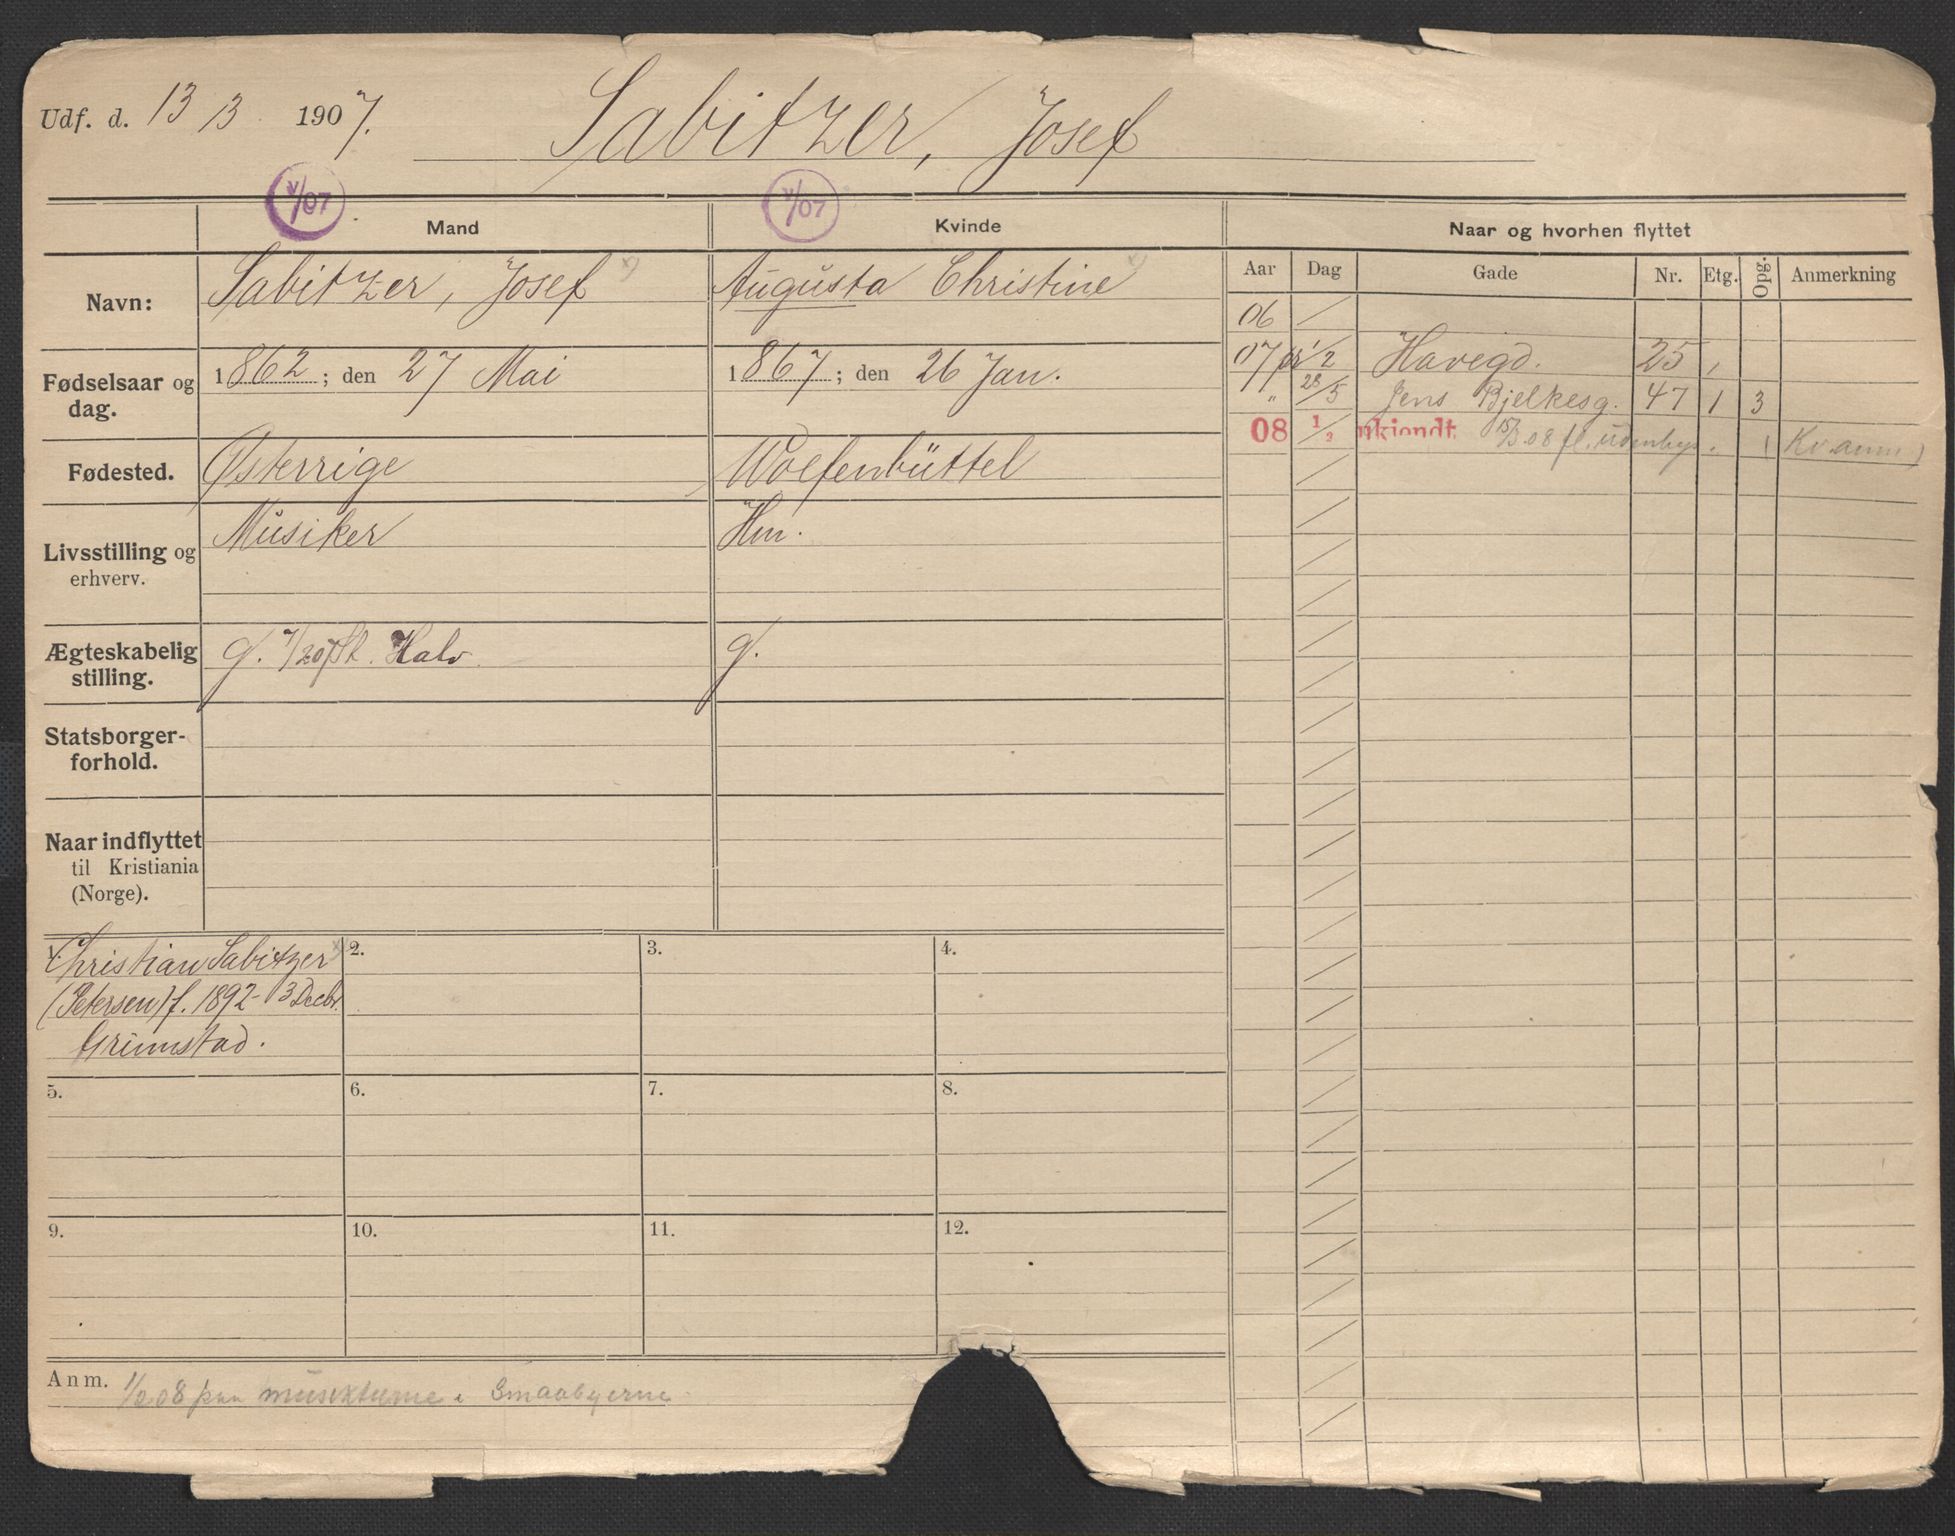 Udf. d. 13 3 1907.
Sabitzer, Josef
V/07
V/07
Mand
Kvinde
Naar og hvorhen flyttet
Aar
Dag
Gade
Nr.
Etg.
Opg.
Anmerkning
Navn:
Sabitzer, Josef x)
Augusta Christine x)
06
07 pr 1/2 Havegd. 25,
" 28/5 Jens Bjelkesg. 47 1 3
08 1/2 ukjendt. 15/3 08 fl. udenbys. (Kv. anm)
Fødselsaar og
dag.
1862; den 27 Mai
1867; den 26 Jan.
Fødested.
Østerrige
Wolfenbüttel
Livsstilling og
erhverv.
Musiker
Hm.
Ægteskabelig
stilling.
g. Halv
g.
Statsborger-
forhold.
Naar indflyttet
til Kristiania
(Norge).
1. Christian Sabitzer x
(Petersen) f. 1892 - 3 Decbr.
Grimstad.
2.
3.
4.
5.
6.
7.
8.
9.
10.
11.
12.
Anm. 1/2 08 paa musikturne i Smaabyerne